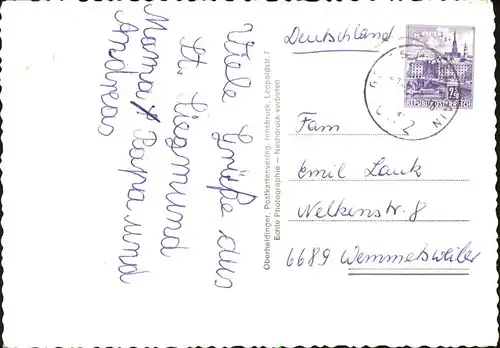 Viele Grüße aus
St. Siegmund
Mama + Papa und
Andreas
Oberhaidinger, Postkartenverlag, Innsbruck, Leopoldstr. 7
Echte Photographie – Nachdruck verboten
Deutschland
REPUBLIK ÖSTERREICH
Fam
Emil Lauk
Nelkenstr. 8
6689 Wemmetsweiler